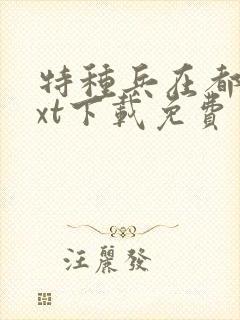 特種兵在都
xt下載免費
汪麗發